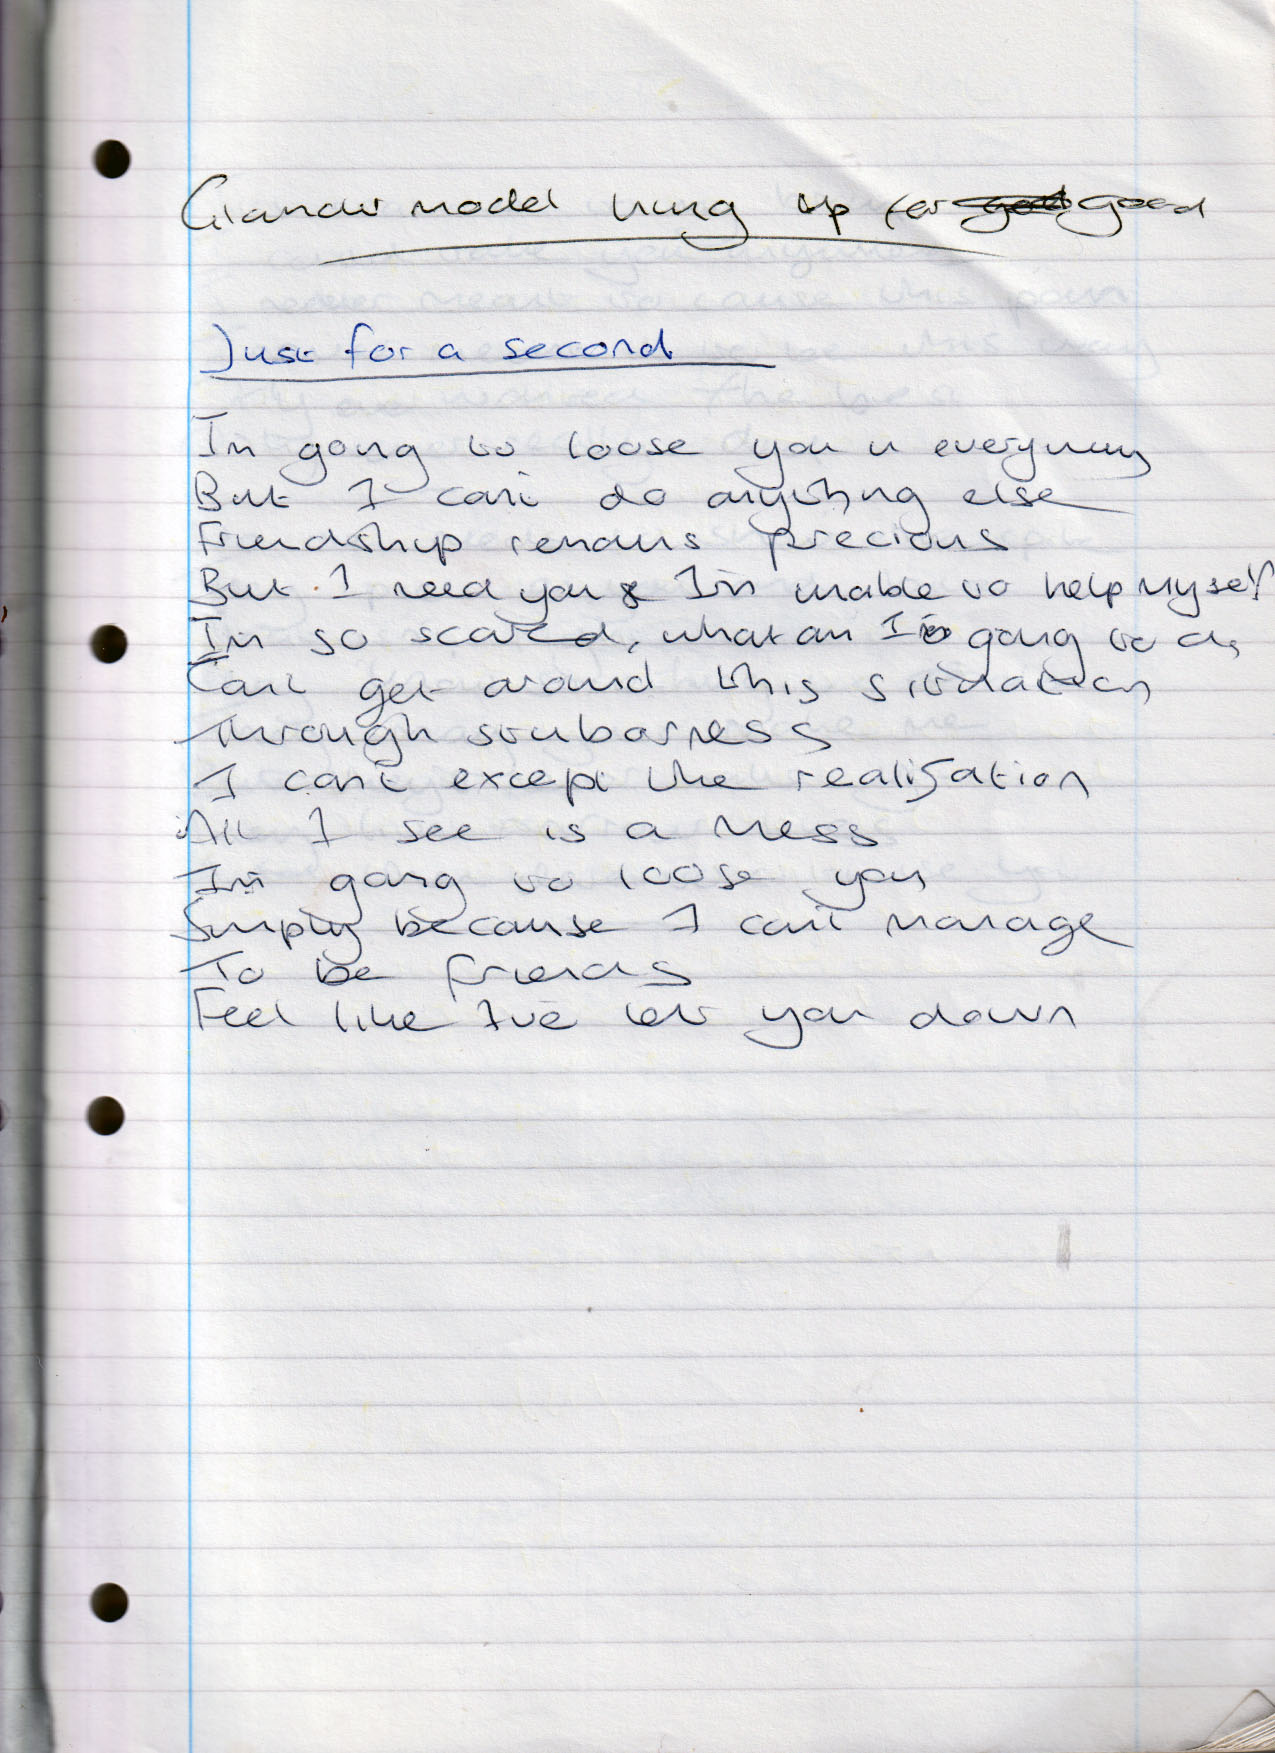 Glamour model hung up for good
Just for a second
I'm going to loose you in everyway
But I can't do anything else
Friendship remains precious
But I need you & I'm unable to help myself
I'm so scared, what am I going to do
Can't get around this situation
Through stubarness
I can't except the realisation
All I see is a mess
I'm going to loose you
Simply because I can't manage
To be friends
Feel like I've let you down